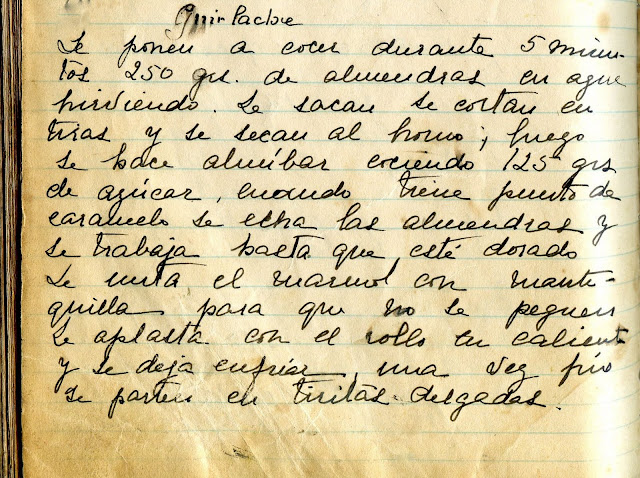 Se ponen a cocer durante 5 minu-
tos 250 grs. de almendras en agua
hirviendo. Se sacan se cortan en
tiras y se secan al horno; luego
se hace almíbar cociendo 125 grs
de azúcar, cuando tiene punto de
caramelo se echa las almendras y
se trabaja hasta que esté dorado
Se unta el marmol con mante-
quilla para que no se peguen
Se aplasta con el rollo en caliente
y se deja enfriar, una vez frio
se parten en tiritas delgadas.